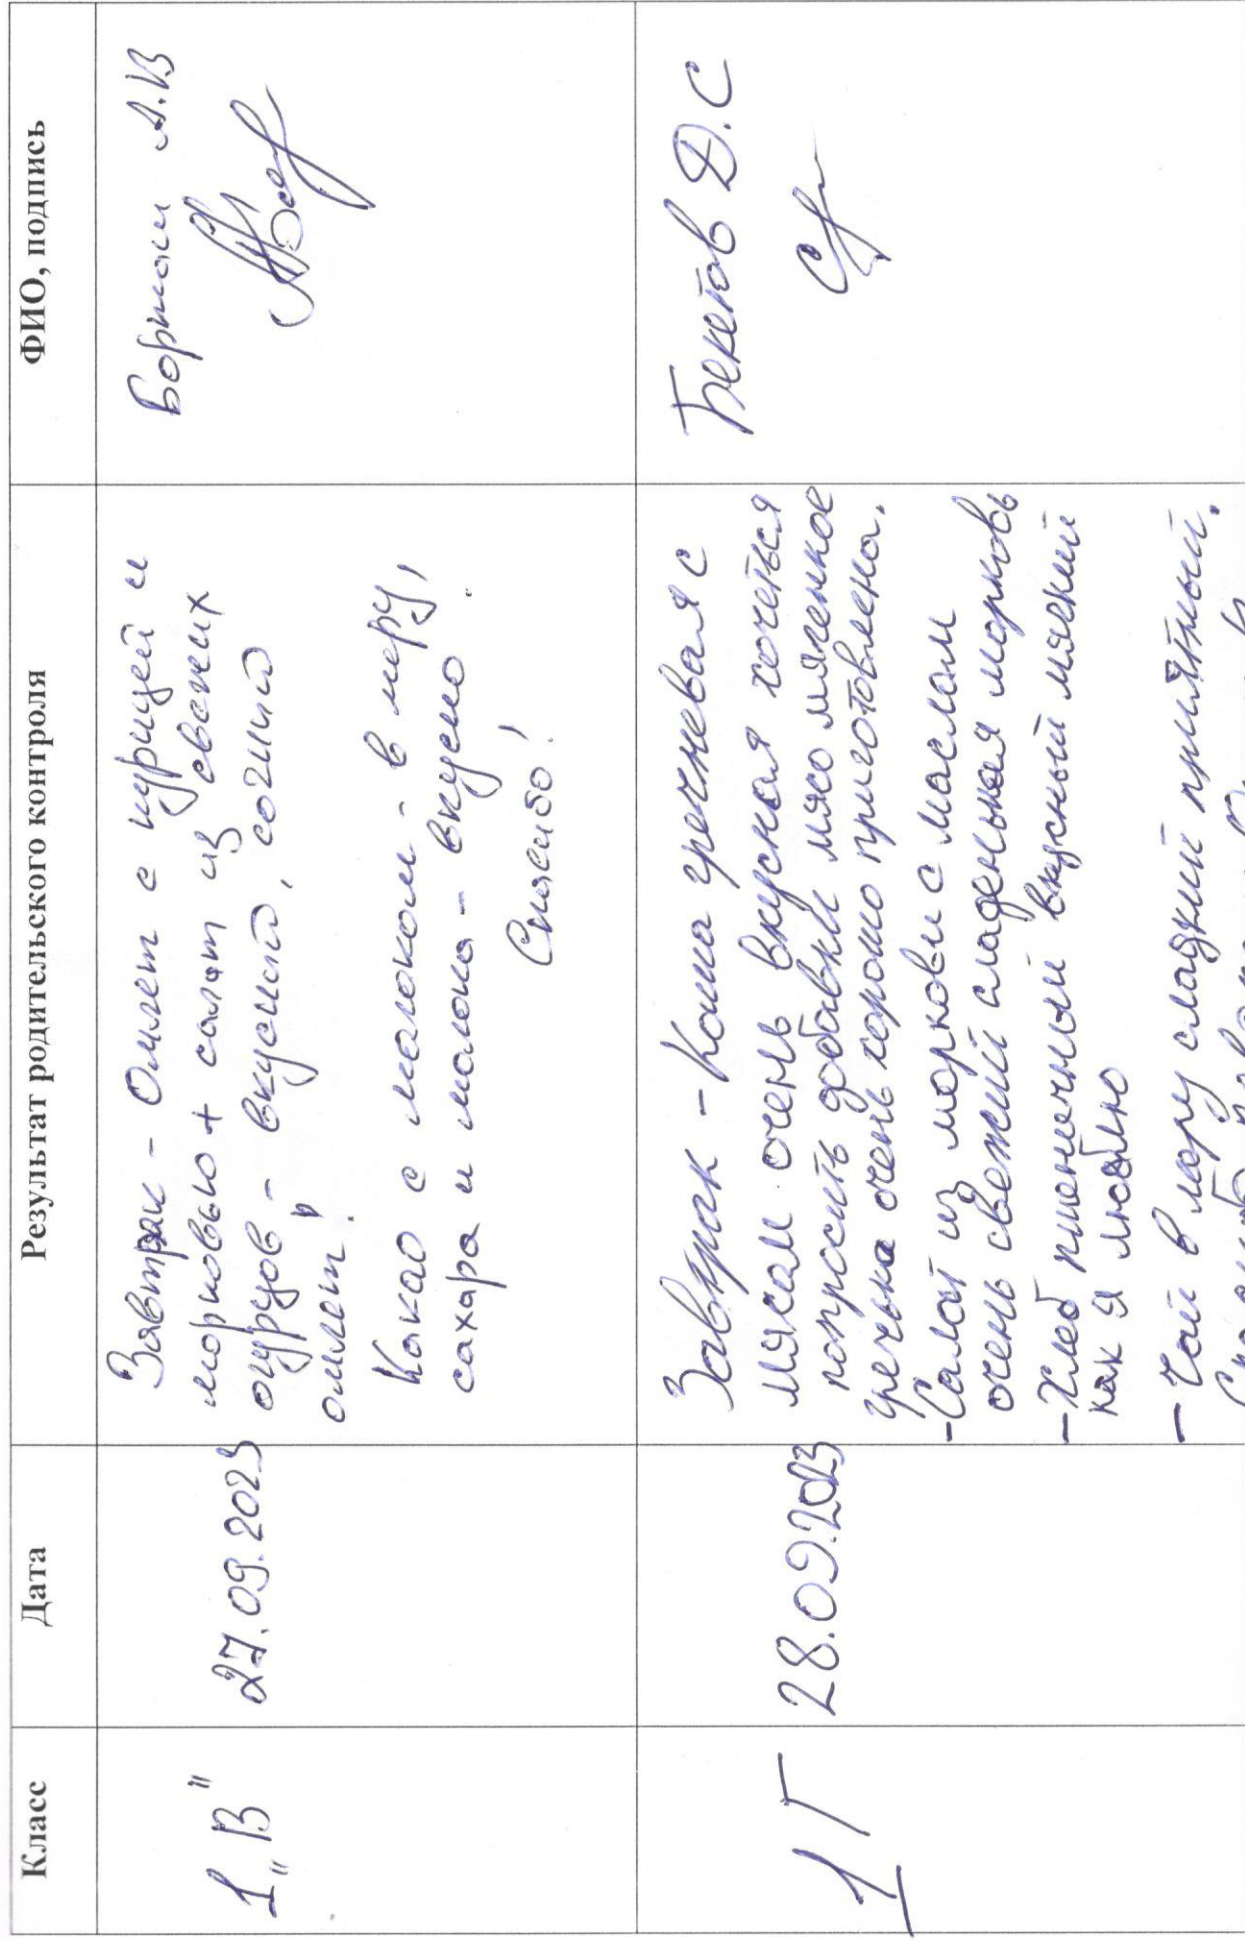 Класс Дата Результат родительского контроля ФИО, подпись
1 „В" 27.09.2023
Завтрак - Омлет с курицей и
морковью + салат из свежих
огурцов - вкусный, сочный
омлет!
Какао с молоком - в меру,
сахара и молока - вкусно
Спасибо!
Борман А.В
1Г 28.09.2023
Завтрак - Каша гречневая с
мясом очень вкусная хочеться
попросить добавки мясо мягенкое
гречька очень хорошо приготовлена.
- Салат из моркови с маслом
очень свежий сладенькая морковь
- Хлеб пшеничный вкусный мягкий
как я люблю
- Чай в меру сладкий приятный.
Бекетов Д.С